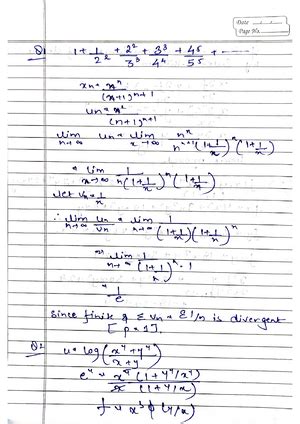 Date
Page No.
Q1 1 + 1/2² + 2²/3³ + 3³/4⁴ + 4⁴/5⁵ + -----
xn = nⁿ/(n+1)ⁿ⁺¹
un = nⁿ/(n+1)ⁿ⁺¹
lim n→∞ un = lim n→∞ nⁿ/nⁿ⁺¹(1+1/n)ⁿ(1+1/n)
= lim n→∞ 1/n(1+1/n)ⁿ(1+1/n)
let Vn = 1/n
∴ lim n→∞ un/Vn = lim n→∞ 1/(1+1/n)(1+1/n)ⁿ
⇒ lim n→∞ 1/(1+1/n)ⁿ · 1
= 1/e
Since finite & Σ Vn = Σ 1/n is divergent
[p = 1].
Q2 u = log(x⁴+y⁴/x+y)
eᵘ = x⁴(1+y⁴/x⁴)/x(1+y/x)
f = x³ϕ(y/x)